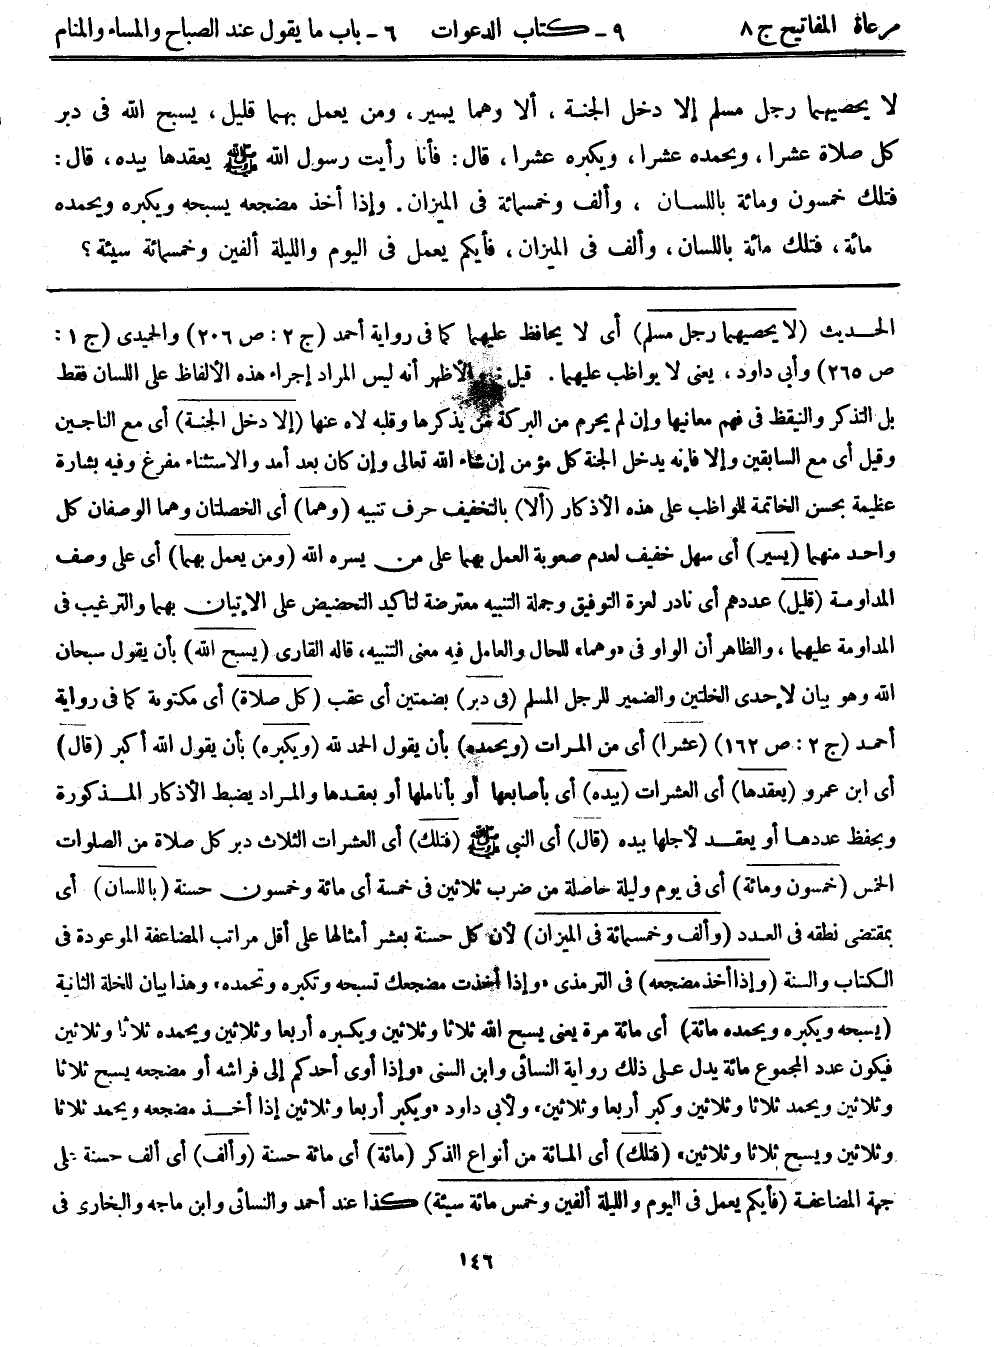 مرعاة المفاتيح ج ٨ ٩ - كتاب الدعوات ٦ - باب ما يقول عند الصباح والمساء والمنام
لا يحصيهما رجل مسلم إلا دخل الجنة ، ألا وهما يسير ، ومن يعمل بهما قليل ، يسبح الله فى دبر
كل صلاة عشرا ، ويحمده عشرا ، ويكبره عشرا ، قال : فأنا رأيت رسول الله ﷺ يعقدها بيده ، قال :
فتلك خمسون ومائة باللسان ، وألف وخمسمائة فى الميزان . وإذا أخذ مضجعه يسبحه ويكبره ويحمده
مائة ، فتلك مائة باللسان ، وألف فى الميزان ، فأيكم يعمل فى اليوم والليلة ألفين وخمسمائة سيئة ؟
الحديث (لا يحصيهما رجل مسلم) أى لا يحافظ عليهما كما فى رواية أحمد (ج ٢ : ص ٢٠٦) والحميدى (ج ١ :
ص ٢٦٥) وأبى داود ، يعنى لا يواظب عليهما . قيل الأظهر أنه ليس المراد إجراء هذه الألفاظ على اللسان فقط
بل التذكر والتيقظ فى فهم معانيها وإن لم يحرم من البركة من يذكرها وقلبه لاه عنها (إلا دخل الجنة) أى مع الناجين
وقيل أى مع السابقين وإلا فإنه يدخل الجنة كل مؤمن إن شاء الله تعالى وإن كان بعد أمد والاستثناء مفرغ وفيه بشارة
عظيمة بحسن الخاتمة للمواظب على هذه الأذكار (ألا) بالتخفيف حرف تنبيه (وهما) أى الخصلتان وهما الوصفان كل
واحد منهما (يسير) أى سهل خفيف لعدم صعوبة العمل بهما على من يسره الله (ومن يعمل بهما) أى على وصف
المداومة (قليل) عددهم أى نادر لعزة التوفيق وجملة التنبيه معترضة لتاكيد التحضيض على الإتيان بهما والترغيب فى
المداومة عليهما ، والظاهر أن الواو فى «وهما» للحال والعامل فيه معنى التنبيه، قاله القارى (يسبح الله) بأن يقول سبحان
الله وهو بيان لإحدى الخلتين والضمير للرجل المسلم (فى دبر) بضمتين أى عقب (كل صلاة) أى مكتوبة كما فى رواية
أحمد (ج ٢ : ص ١٦٢) (عشرا) أى من المرات (ويحمده) بأن يقول الحمد لله (ويكبره) بأن يقول الله أكبر (قال)
أى ابن عمرو (يعقدها) أى العشرات (بيده) أى بأصابعها أو بأناملها أو بعقدها والمراد يضبط الأذكار المذكورة
ويحفظ عددها أو يعقد لأجلها بيده (قال) أى النبى ﷺ (فتلك) أى العشرات الثلاث دبر كل صلاة من الصلوات
الخمس (خمسون ومائة) أى فى يوم وليلة حاصلة من ضرب ثلاثين فى خمسة أى مائة وخمسون حسنة (باللسان) أى
بمقتضى نطقه فى العدد (وألف وخمسمائة فى الميزان) لأن كل حسنة بعشر أمثالها على أقل مراتب المضاعفة الموعودة فى
الكتاب والسنة (وإذا أخذ مضجعه) فى الترمذى «وإذا أخذت مضجعك تسبحه وتكبره وتحمده» وهذا بيان للخلة الثانية
(يسبحه ويكبره ويحمده مائة) أى مائة مرة يعنى يسبح الله ثلاثا وثلاثين ويكبره أربعا وثلاثين ويحمده ثلاثا وثلاثين
فيكون عدد المجموع مائة يدل على ذلك رواية النسائى وابن السنى «وإذا أوى أحدكم إلى فراشه أو مضجعه يسبح ثلاثا
وثلاثين ويحمد ثلاثا وثلاثين وكبر أربعا وثلاثين» ولأبى داود «ويكبر أربعا وثلاثين إذا أخذ مضجعه ويحمد ثلاثا
وثلاثين ويسبح ثلاثا وثلاثين» (فتلك) أى المائة من أنواع الذكر (مائة) أى مائة حسنة (وألف) أى ألف حسنة على
جهة المضاعفة (فأيكم يعمل فى اليوم والليلة ألفين وخمس مائة سيئة) كذا عند أحمد والنسائى وابن ماجه والبخارى فى
١٤٦